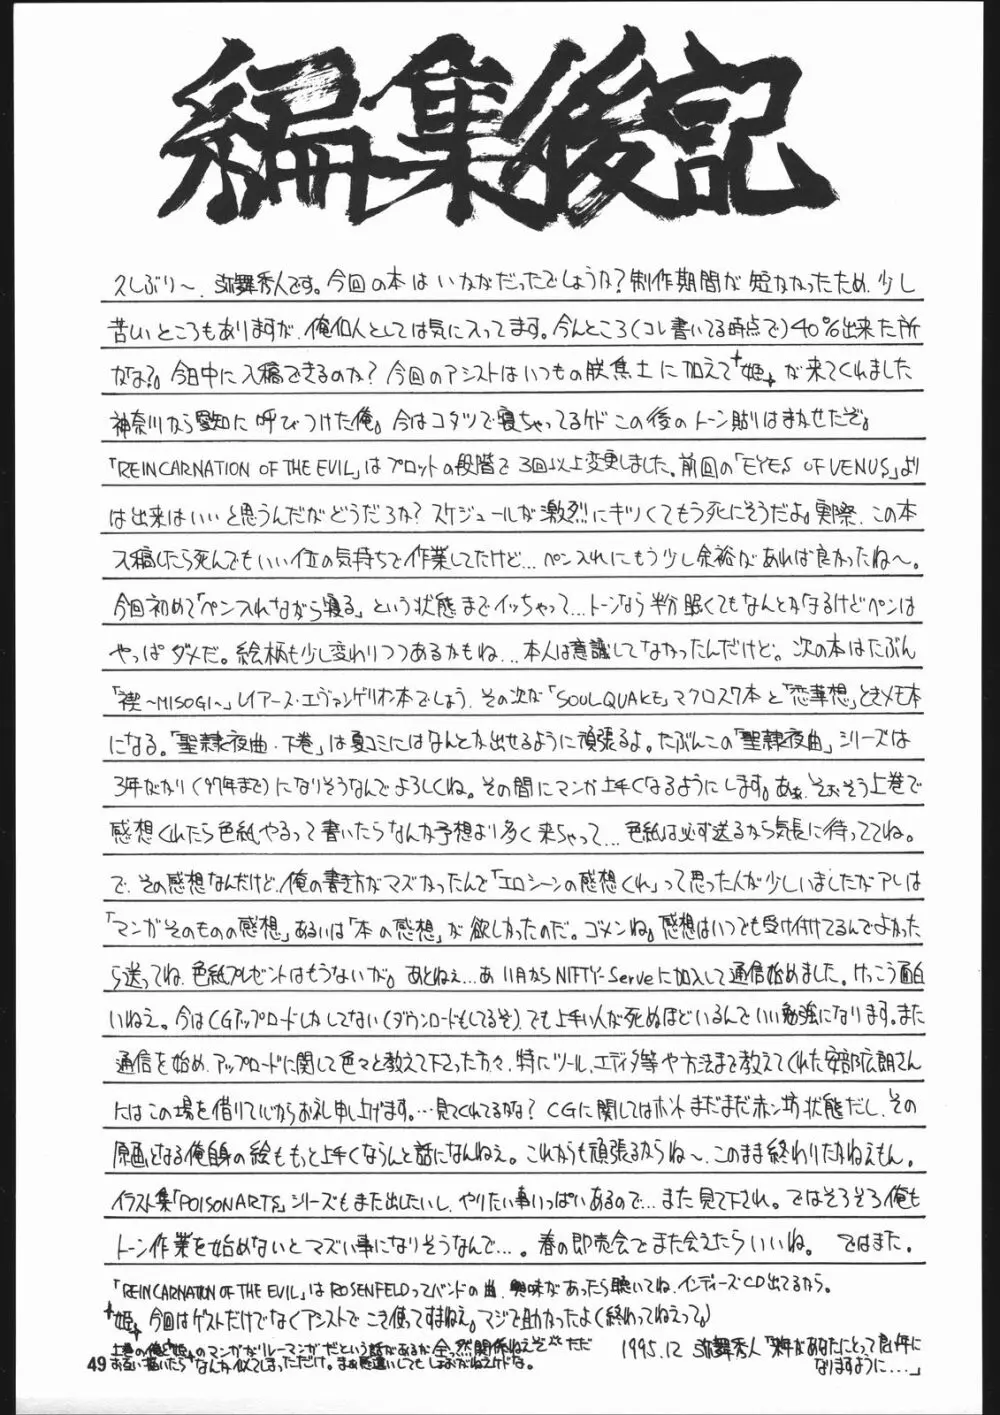 編集後記
久しぶり〜、弥舞秀人です。今回の本はいかがだったでしょうか?制作期間が短かったため、少し
苦しいところもありますが、俺個人としては気に入ってます。今んところ(コレ書いてる時点で)40%出来た所
かな?。今日中に入稿できるのか?今回のアシストはいつもの朕焦土に加えて+姫+が来てくれました
神奈川から愛知に呼びつけた俺。今はコタツで寝ちゃってるケドこの後のトーン貼りはまかせたぞ。
「REINCARNATION OF THE EVIL」はプロットの段階で3回以上変更しました。前回の「EYES OF VENUS」より
は出来はいいと思うんだがどうだろか?スケジュールが激烈にキツくてもう死にそうだよ。実際、この本
入稿したら死んでもいい位の気持ちで作業してたけど…ペン入れにもう少し余裕があれば良かったね〜。
今回初めて「ペン入れながら寝る」という状態までイッちゃって…トーンなら半分眠くてもなんとかなるけどペンは
やっぱダメだ。絵柄も少し変わりつつあるかもね…本人は意識してなかったんだけど。次の本はたぶん
「禊〜MISOGI〜」レイアース・エヴァンゲリオン本でしょう。その次が「SOUL QUAKE」マクロス7本と「恋華想」ときメモ本
になる。「聖隷夜曲・下巻」は夏コミにはなんとか出せるように頑張るよ。たぶんこの「聖隷夜曲」シリーズは
3年がかり(97年まで)になりそうなんでよろしくね。その間にマンガ上手くなるようにします。あぁ、そおそう上巻で
感想くれたら色紙やるって書いたらなんか予想より多く来ちゃって…色紙は必ず送るから気長に待っててね。
で、その感想なんだけど、俺の書き方がマズかったんで「エロシーンの感想くれ」って思った人が少しいましたがアレは
「マンガそのものの感想」あるいは「本の感想」が欲しかったのだ。ゴメンね。感想はいつでも受け付けてるんでよかった
ら送ってね、色紙プレゼントはもうないが。あとねぇ…あ11月からNIFTY-Serveに加入して通信始めました。けっこう面白
いねえ。今はCGアップロードしかしてない(ダウンロードもしてるぞ)、でも上手い人が死ぬほどいるんでいい勉強になります。また
通信を始め、アップロードに関して色々と教えて下さった方々、特にツール、エディタ等や方法まで教えてくれた安部広朗さん
にはこの場を借りて心からお礼申し上げます。…見てくれてるかな?CGに関してはホントまだまだ赤ン坊状態だし、その
原画となる俺自身の絵ももっと上手くならんと話になんねえ。これからも頑張るからね〜、このまま終わりたかねえもん。
イラスト集「POISON ARTS」シリーズもまた出したいし、やりたい事いっぱいあるので…また見て下され。ではそろそろ俺も
トーン作業を始めないとマズい事になりそうなんで…。春の即売会でまた会えたらいいね。ではまた。
「REINCARNATION OF THE EVIL」はROSENFELDってバンドの曲、興味があったら聴いてね、インディーズCD出てるから。
+姫+今回はゲストだけでなくアシストでこき使ってすまねえ。マジで助かったよ(終わってねえって)
上巻の俺と+姫+のマンガがリレーマンガだという話があるが全っ然関係ねえぞ。ただ
お互い描いたらなんか似てしまっただけ。まぁ勘違いしてもしょおがねえけどな。
1995.12 弥舞秀人「来年があなたにとって良い年に
なりますように…」
49